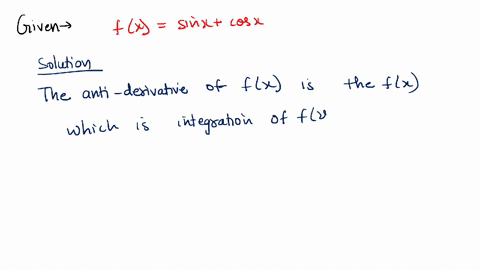 Given→ f(x) = sinx + cosx
Solution
The anti-derivative of f(x) is the f(x)
which is integration of f(x